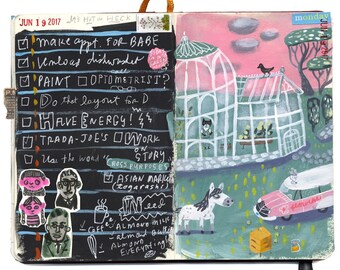 JUN 19 2017
monday
MAKE APPT. FOR BABE
Unload dishwasher
PAINT OPTOMETRIST?
Do that layout for D
HAVE ENERGY!
TRADA-JOE'S WORK
ON
Use the word STORY
ASIAN MARKET
Need
COFFEE ALMOND MILK
ALMOND
EVERYTHING